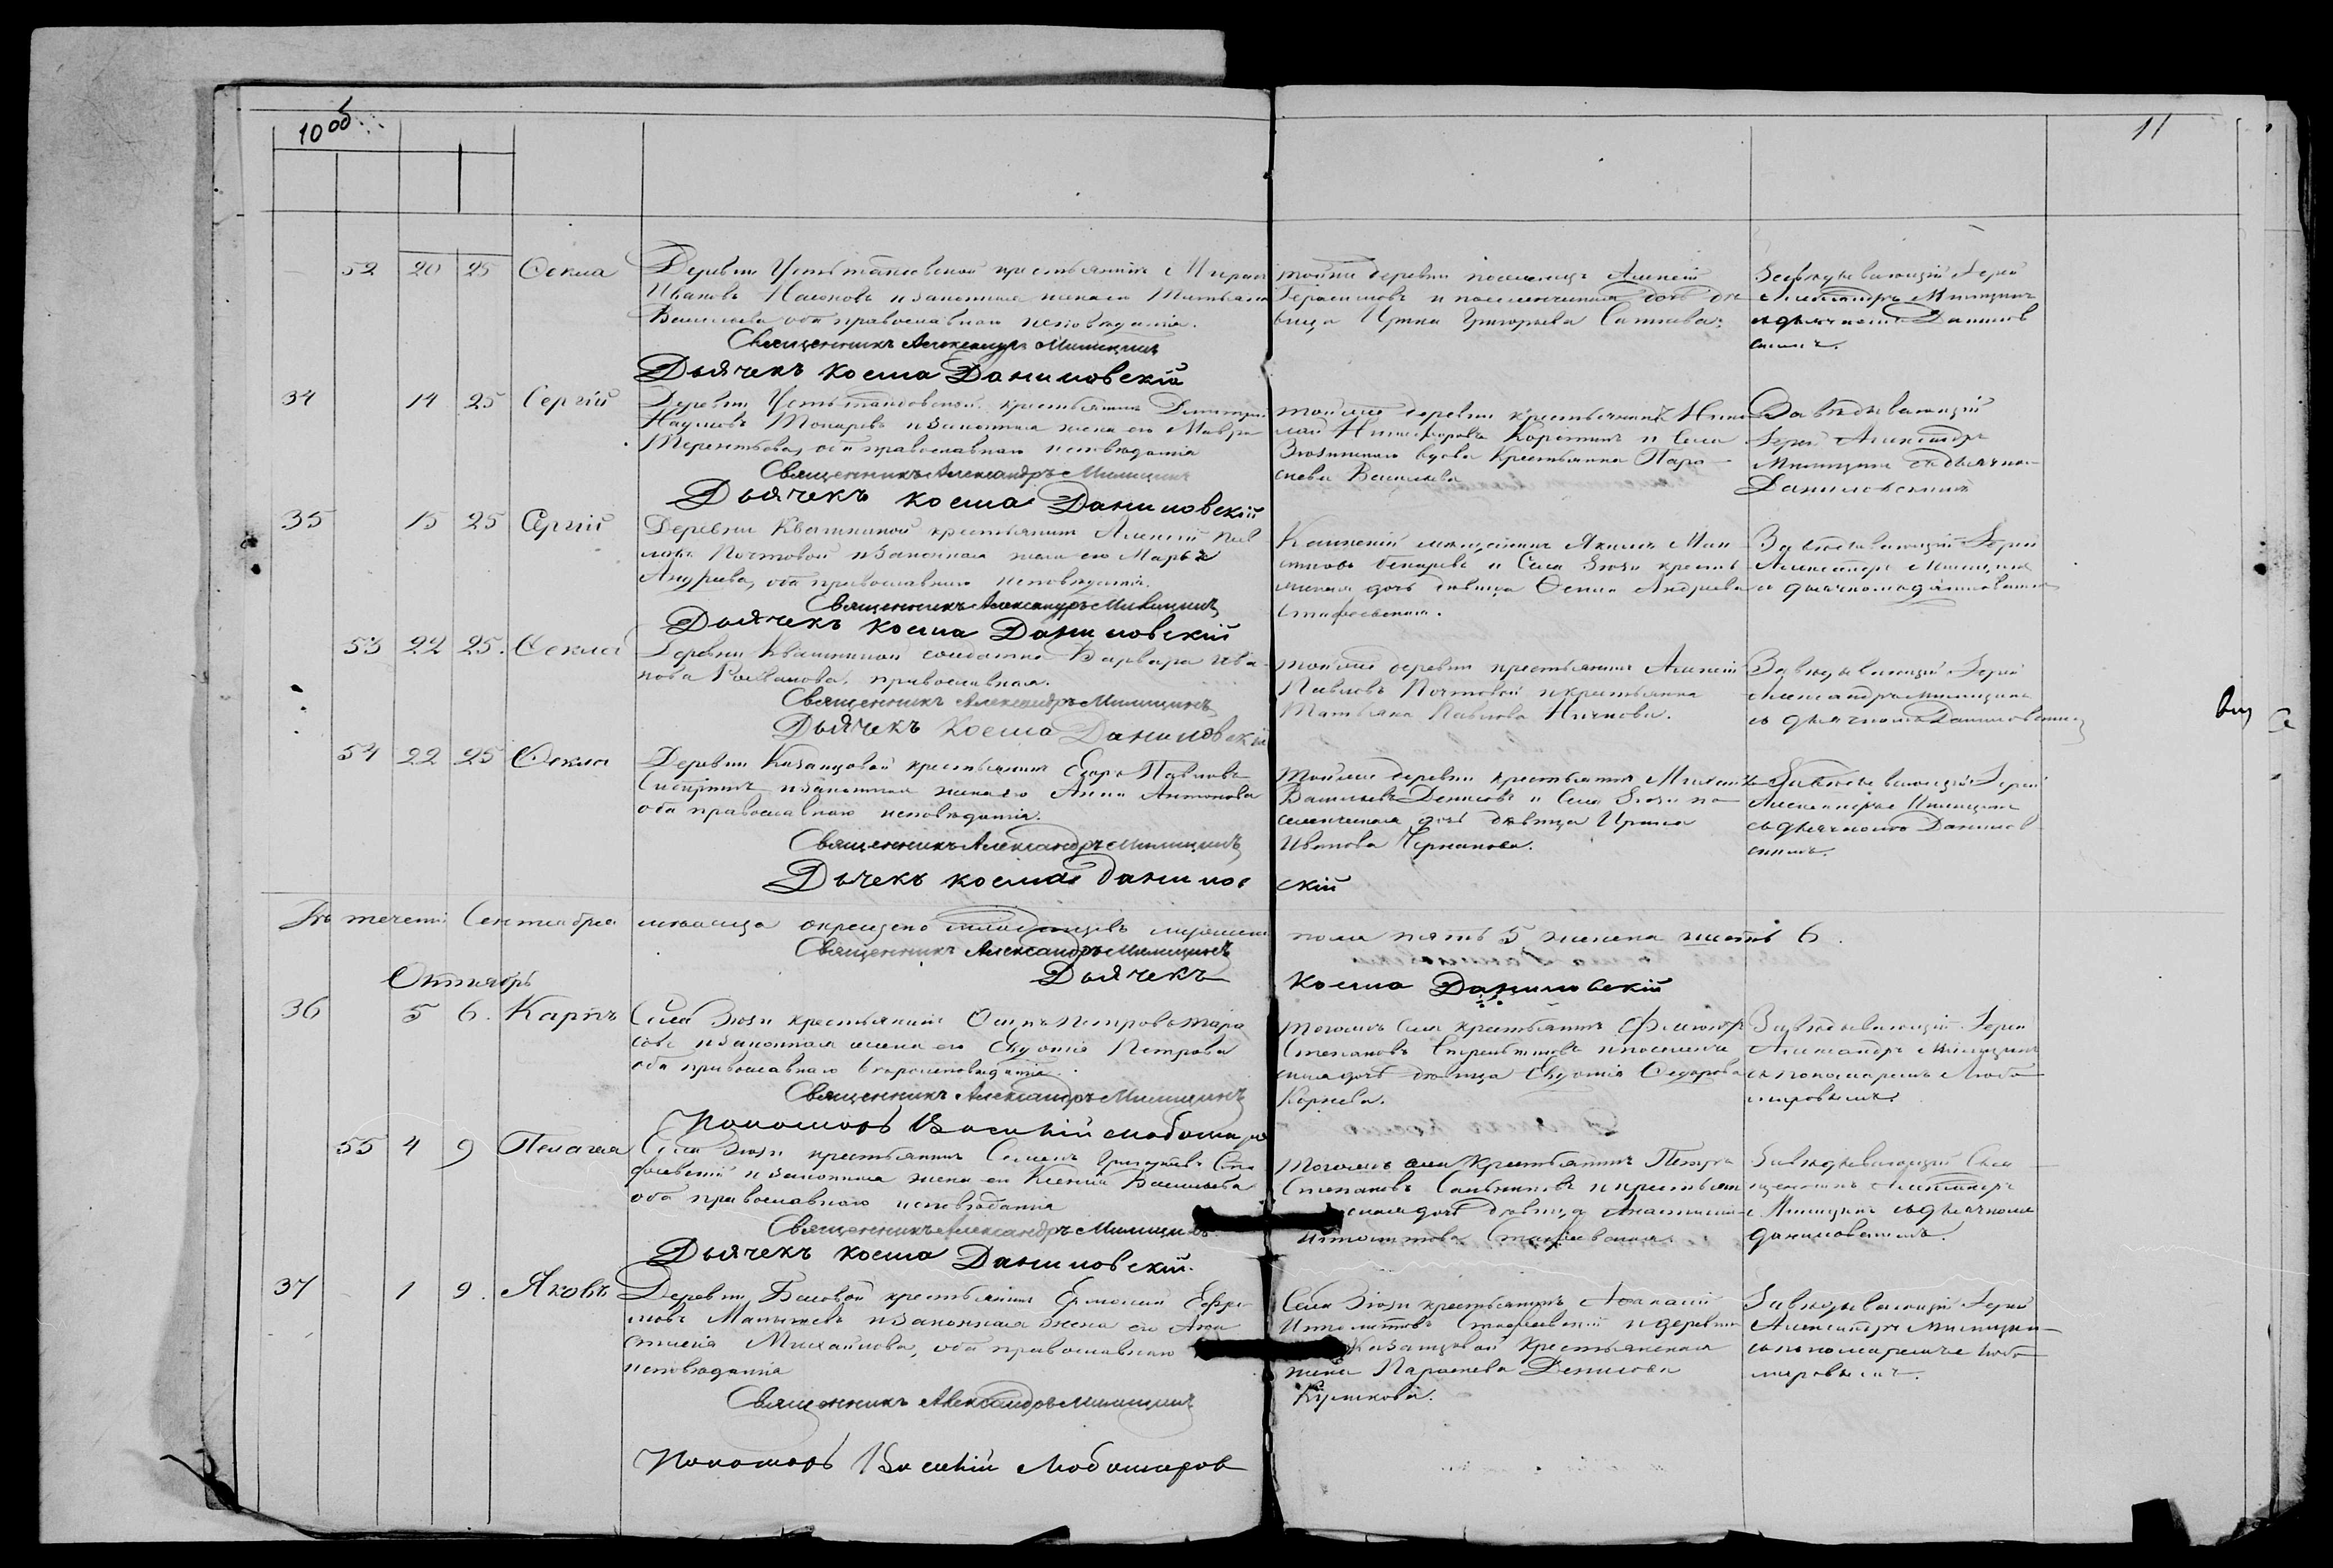 10 об.
11
52 20 25 Ѳекла
Деревни Усть-тандовской крестьянинъ Миронъ
Ивановъ и законная жена его Татьяна
Васильева оба православнаго исповѣданія.
Священникъ Александръ Милицинъ
Дьячекъ Косма Даниловскій
тойже деревни поселенецъ Алексѣй
Герасимовъ и поселенческая дочь дѣ-
вица Ирина Григорьева
Завѣдывающій Іерей
Александръ Милицинъ
съ дьячкомъ Данилов
скимъ.
34 14 25 Сергій
Деревни Усть-тандовской крестьянинъ Дмитрій
Наумовъ Токаревъ и законная жена его Мавра
Терентьева, оба православнаго исповѣданія
Священникъ Александръ Милицинъ
Дьячекъ Косма Даниловскій
тойже деревни крестьянинъ Нико
лай Никифоровъ и села
Зюзинскаго вдова крестьянка Пара-
скева Васильева
Завѣдывающій
Іерей Александръ
Милицинъ съ дьячкомъ
Даниловскимъ
35 15 25 Сергій
Деревни Квашниной крестьянинъ Алексѣй Пав
ловъ Почтовой и законная жена его Марья
Андреева, оба православнаго исповѣданія.
Священникъ Александръ Милицинъ
Дьячекъ Косма Даниловскій
Каинскій мѣщанинъ Акимъ
и села Зюзи крестья
нская дочь дѣвица Ѳекла Андреева
Стафеевская.
Завѣдывающій Іерей
Александръ Милицинъ
съ дьячкомъ Даниловскимъ
53 22 25. Ѳекла
Деревни Квашниной солдатка Варвара Ива
нова православная.
Священникъ Александръ Милицинъ
Дьячекъ Косма Даниловскій
тойже деревни крестьянинъ Алексѣй
Павловъ Почтовой и крестьянка
Татьяна Павлова
Завѣдывающій Іерей
Александръ Милицинъ
съ дьячкомъ Даниловскимъ
54 22 25 Ѳекла
Деревни Казанцовой крестьянинъ Егоръ Павловъ
и законная жена его Анна Антонова
оба православнаго исповѣданія.
Священникъ Александръ Милицинъ
Дьчекъ Косма Данилов
скій
тойже деревни крестьянинъ Михаилъ
Васильевъ Денисовъ и села Зюзи по
селенческая дочь дѣвица Ирина
Иванова
Завѣдывающій Іерей
Александръ Милицинъ
съ дьячкомъ Данилов
скимъ.
Въ теченіи Сентября мѣсяца окрещено младенцевъ мужеска пола пять 5 женска шесть 6.
Священникъ Александръ Милицинъ
Дьячекъ Косма Даниловскій
Октябрь
36 5 6. Карпъ
Села Зюзи крестьянинъ Осипъ Петровъ Тара
совъ и законная жена его Евдокія Петрова
оба православнаго вѣроисповѣданія.
Священникъ Александръ Милицинъ
Пономарь Василій Любомиров
тогожъ села крестьянинъ
Степановъ и поселенче
ская дочь дѣвица Евдокія Ѳедорова
Корнева.
Завѣдывающій Іерей
Александръ Милицинъ
съ пономаремъ Любо
мировымъ.
55 4 9 Пелагея
Села Зюзи крестьянинъ Семенъ Григорьевъ Ста
феевскій и законная жена его Ксенія Васильева
оба православнаго исповѣданія
Священникъ Александръ Милицинъ
Дьячекъ Косма Даниловскій.
тогожъ села крестьянинъ Петръ
Степановъ и крестьян
ская дочь дѣвица Анастасія
Ипполитова Стафеевская.
Завѣдывающій Свя
щенникъ Александръ
Милицинъ съ дьячкомъ
Даниловскимъ.
37 1 9. Яковъ
Деревни Бѣловой крестьянинъ Ермолай Ефре
мовъ и законная жена его Ана
стасія Михайлова, оба православнаго
исповѣданія
Священникъ Александръ Милицинъ
Пономарь Василій Любомиров
Села Зюзи крестьянинъ Аѳанасій
Ипполитовъ Стафеевскій и деревни
Казанцовой крестьянская
жена Параскева Денисова
Куликова.
Завѣдывающій Іерей
Александръ Милицинъ
съ пономаремъ Любо
мировымъ.